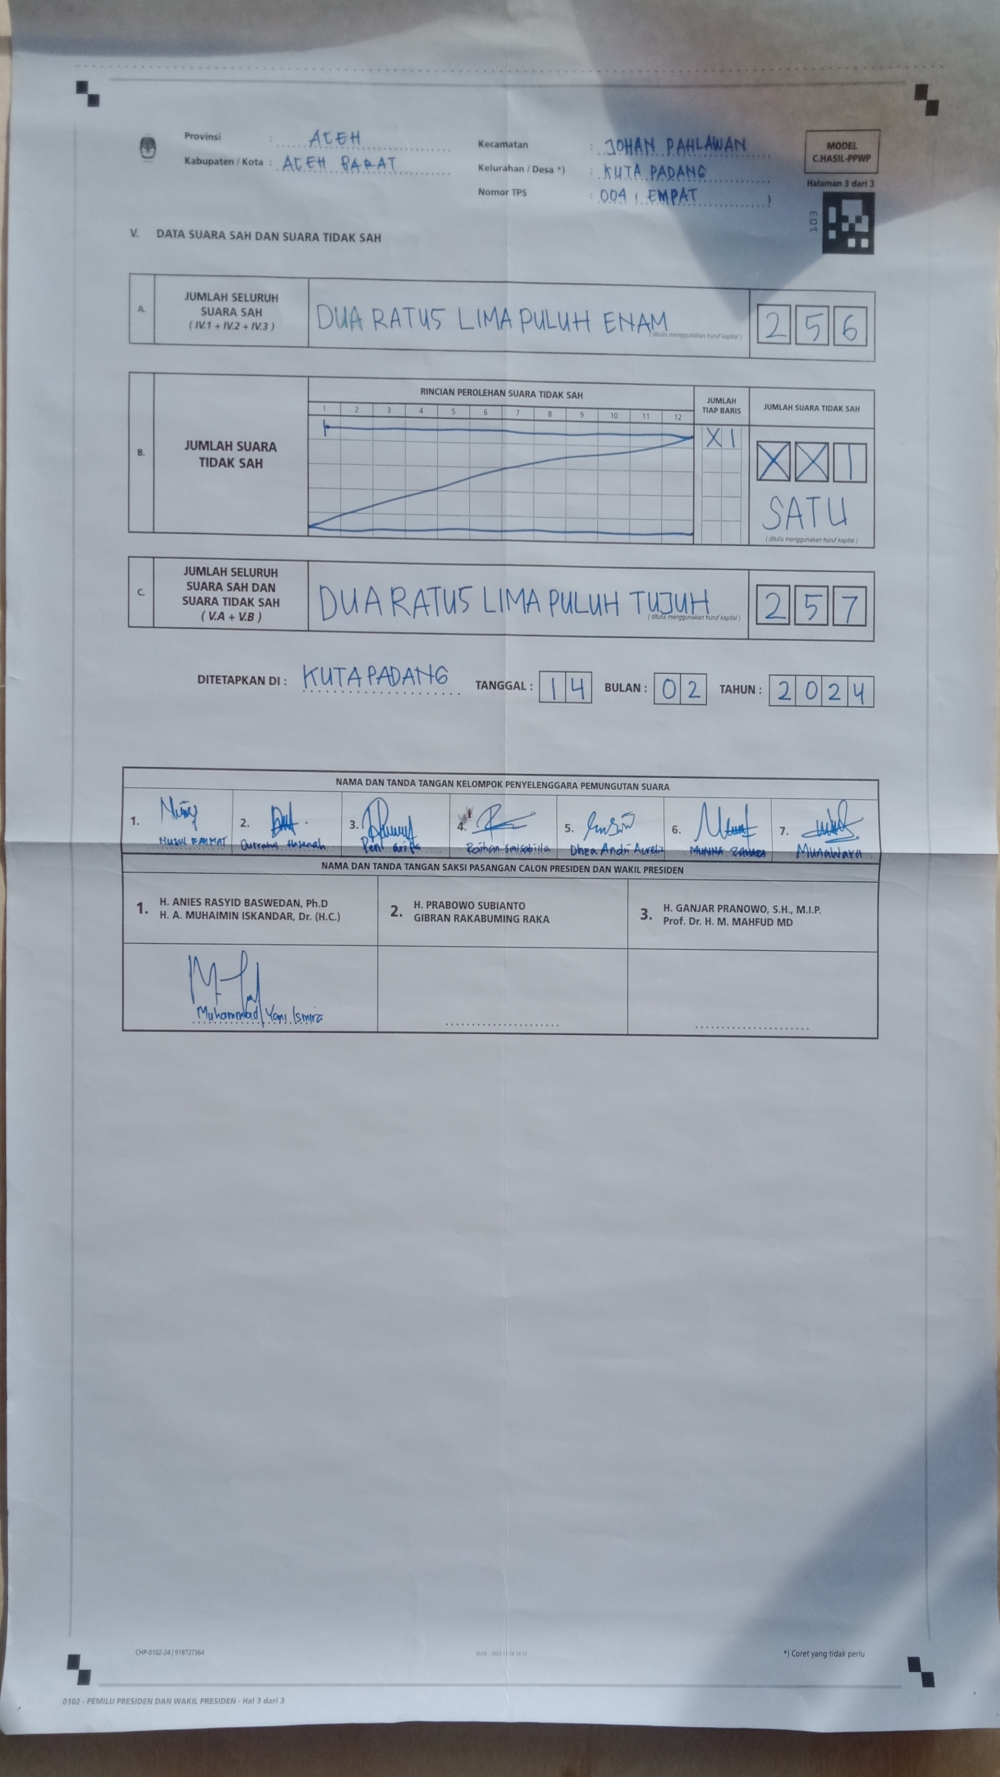 Provinsi : ACEH
Kabupaten / Kota : ACEH BARAT
Kecamatan : JOHAN PAHLAWAN
Kelurahan / Desa *) : KUTA PADANG
Nomor TPS : 004 ( EMPAT )
MODEL
C.HASIL-PPWP
Halaman 3 dari 3
103
V. DATA SUARA SAH DAN SUARA TIDAK SAH
A. JUMLAH SELURUH
SUARA SAH
( IV.1 + IV.2 + IV.3 )
DUA RATUS LIMA PULUH ENAM
( ditulis menggunakan huruf kapital )
2 5 6
B. JUMLAH SUARA
TIDAK SAH
RINCIAN PEROLEHAN SUARA TIDAK SAH
1 2 3 4 5 6 7 8 9 10 11 12
JUMLAH
TIAP BARIS
X 1
JUMLAH SUARA TIDAK SAH
X X 1
SATU
( ditulis menggunakan huruf kapital )
C. JUMLAH SELURUH
SUARA SAH DAN
SUARA TIDAK SAH
( V.A + V.B )
DUA RATUS LIMA PULUH TUJUH
( ditulis menggunakan huruf kapital )
2 5 7
DITETAPKAN DI : KUTA PADANG TANGGAL : 14 BULAN : 02 TAHUN : 2024
NAMA DAN TANDA TANGAN KELOMPOK PENYELENGGARA PEMUNGUTAN SUARA
1. 2. 3. 4. 5. 6. 7.
Raihan Salsabilla Dhea Andri Aurelia Munawara
NAMA DAN TANDA TANGAN SAKSI PASANGAN CALON PRESIDEN DAN WAKIL PRESIDEN
1. H. ANIES RASYID BASWEDAN, Ph.D
H. A. MUHAIMIN ISKANDAR, Dr. (H.C.)
2. H. PRABOWO SUBIANTO
GIBRAN RAKABUMING RAKA
3. H. GANJAR PRANOWO, S.H., M.I.P.
Prof. Dr. H. M. MAHFUD MD
Muhammad Yani
CHP-0102-24 | 918727364
*) Coret yang tidak perlu
0102 - PEMILU PRESIDEN DAN WAKIL PRESIDEN - Hal 3 dari 3